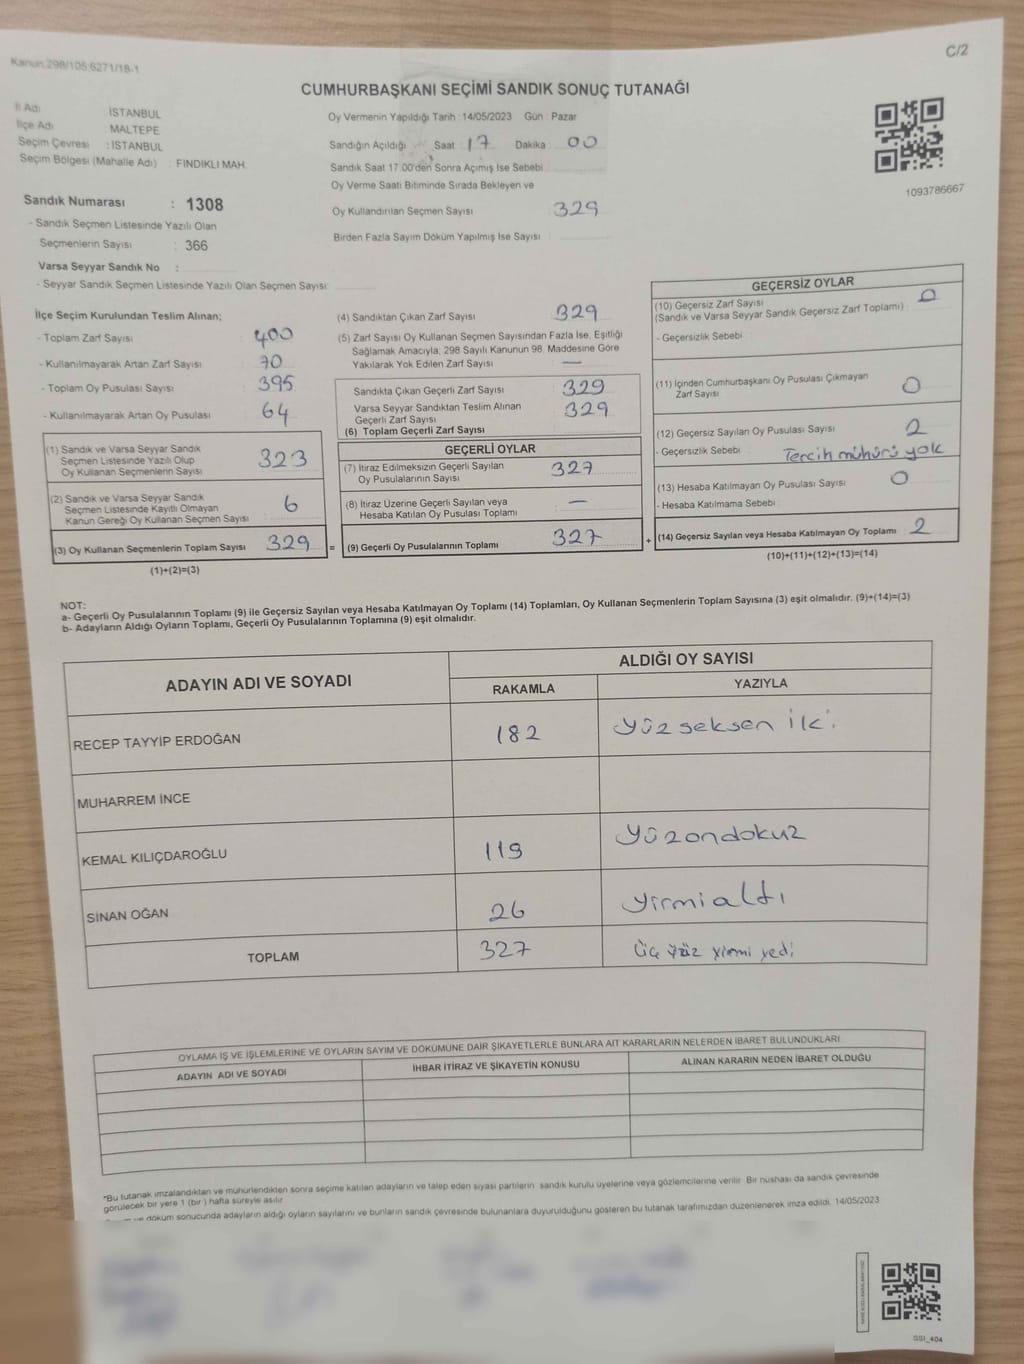 Kanun:298/105;6271/18-1
C/2
CUMHURBAŞKANI SEÇİMİ SANDIK SONUÇ TUTANAĞI
İl Adı : İSTANBUL
İlçe Adı : MALTEPE
Seçim Çevresi : İSTANBUL
Seçim Bölgesi (Mahalle Adı) : FINDIKLI MAH.
Sandık Numarası : 1308
- Sandık Seçmen Listesinde Yazılı Olan
Seçmenlerin Sayısı : 366
Varsa Seyyar Sandık No :
- Seyyar Sandık Seçmen Listesinde Yazılı Olan Seçmen Sayısı:
Oy Vermenin Yapıldığı Tarih :14/05/2023 Gün : Pazar
Sandığın Açıldığı Saat : 17 Dakika : 00
Sandık Saat 17:00'den Sonra Açımış İse Sebebi
Oy Verme Saati Bitiminde Sırada Bekleyen ve
Oy Kullandırılan Seçmen Sayısı : 329
Birden Fazla Sayım Döküm Yapılmış İse Sayısı :
1093786667
İlçe Seçim Kurulundan Teslim Alınan;
- Toplam Zarf Sayısı : 400
- Kullanılmayarak Artan Zarf Sayısı : 70
- Toplam Oy Pusulası Sayısı : 395
- Kullanılmayarak Artan Oy Pusulası : 64
(1) Sandık ve Varsa Seyyar Sandık
Seçmen Listesinde Yazılı Olup
Oy Kullanan Seçmenlerin Sayısı : 323
(2) Sandık ve Varsa Seyyar Sandık
Seçmen Listesinde Kayıtlı Olmayan
Kanun Gereği Oy Kullanan Seçmen Sayısı : 6
(3) Oy Kullanan Seçmenlerin Toplam Sayısı : 329
(1)+(2)=(3)
(4) Sandıktan Çıkan Zarf Sayısı : 329
(5) Zarf Sayısı Oy Kullanan Seçmen Sayısından Fazla İse, Eşitliği
Sağlamak Amacıyla, 298 Sayılı Kanunun 98. Maddesine Göre
Yakılarak Yok Edilen Zarf Sayısı : —
Sandıkta Çıkan Geçerli Zarf Sayısı : 329
Varsa Seyyar Sandıktan Teslim Alınan
Geçerli Zarf Sayısı : 329
(6) Toplam Geçerli Zarf Sayısı
=
GEÇERLİ OYLAR
(7) İtiraz Edilmeksizin Geçerli Sayılan
Oy Pusulalarının Sayısı : 327
(8) İtiraz Üzerine Geçerli Sayılan veya
Hesaba Katılan Oy Pusulası Toplamı : —
(9) Geçerli Oy Pusulalarının Toplamı : 327
+
GEÇERSİZ OYLAR
(10) Geçersiz Zarf Sayısı : 0
(Sandık ve Varsa Seyyar Sandık Geçersiz Zarf Toplamı)
- Geçersizlik Sebebi :
(11) İçinden Cumhurbaşkanı Oy Pusulası Çıkmayan
Zarf Sayısı : 0
(12) Geçersiz Sayılan Oy Pusulası Sayısı : 2
- Geçersizlik Sebebi : Tercih mühürü yok
(13) Hesaba Katılmayan Oy Pusulası Sayısı : 0
- Hesaba Katılmama Sebebi :
(14) Geçersiz Sayılan veya Hesaba Katılmayan Oy Toplamı : 2
(10)+(11)+(12)+(13)=(14)
NOT:
a- Geçerli Oy Pusulalarının Toplamı (9) ile Geçersiz Sayılan veya Hesaba Katılmayan Oy Toplamı (14) Toplamları, Oy Kullanan Seçmenlerin Toplam Sayısına (3) eşit olmalıdır. (9)+(14)=(3)
b- Adayların Aldığı Oyların Toplamı, Geçerli Oy Pusulalarının Toplamına (9) eşit olmalıdır.
ADAYIN ADI VE SOYADI
ALDIĞI OY SAYISI
RAKAMLA YAZIYLA
RECEP TAYYİP ERDOĞAN 182 Yüz seksen iki
MUHARREM İNCE
KEMAL KILIÇDAROĞLU 119 Yüzondokuz
SİNAN OĞAN 26 Yirmialtı
TOPLAM 327 Üç Yüz yirmi yedi
OYLAMA İŞ VE İŞLEMLERİNE VE OYLARIN SAYIM VE DÖKÜMÜNE DAİR ŞİKAYETLERLE BUNLARA AİT KARARLARIN NELERDEN İBARET BULUNDUKLARI
ADAYIN ADI VE SOYADI İHBAR İTİRAZ VE ŞİKAYETİN KONUSU ALINAN KARARIN NEDEN İBARET OLDUĞU
*Bu tutanak imzalandıktan ve mühürlendikten sonra seçime katılan adayların ve talep eden siyasi partilerin sandık kurulu üyelerine veya gözlemcilerine verilir. Bir nüshası da sandık çevresinde
görülecek bir yere 1 (bir) hafta süreyle asılır.
ve döküm sonucunda adayların aldığı oyların sayılarını ve bunların sandık çevresinde bulunanlara duyurulduğunu gösteren bu tutanak tarafımızdan düzenlenerek imza edildi. 14/05/2023
SSI_404